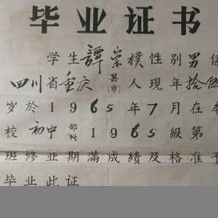 毕业证书
学生譚崇樸性别男係
四川省重庆县(市)人現年拾伍
岁於1965年7月在本
校初中部科1965級第
班修业期滿成績及格准予
毕业此証